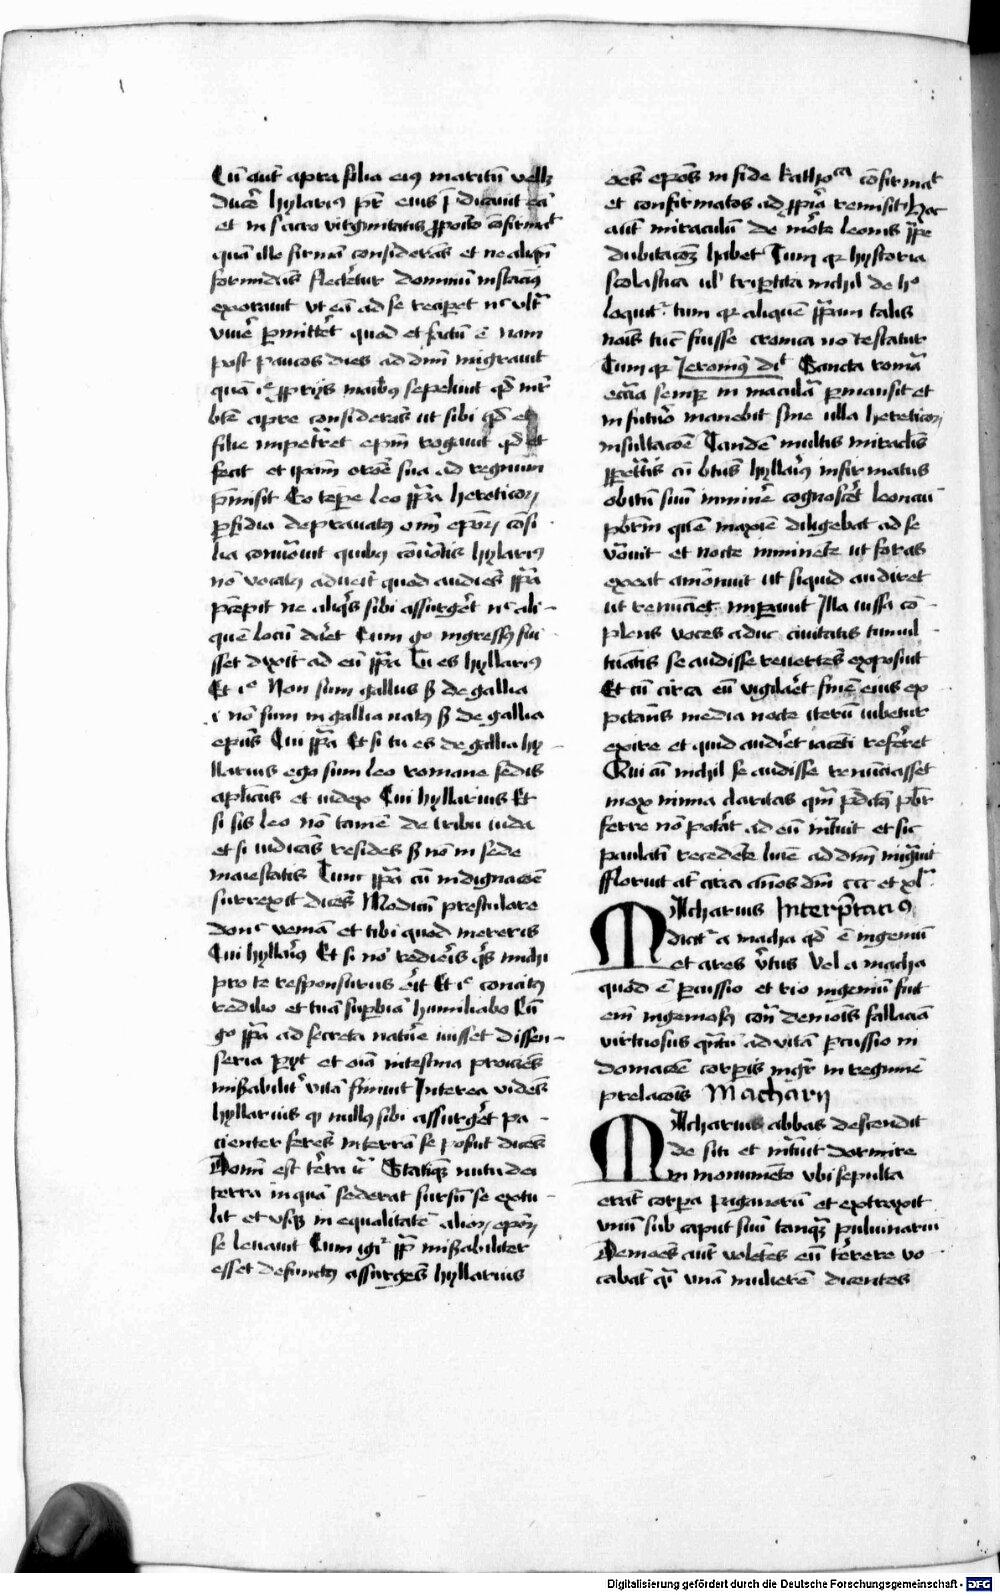 Cū aut̄ apra filia eiꝰ maritū vellꝫ
ducē hylariꝰ pr̄ eius p̄dicauit eā
et in sacro virginitatis ꝓposito cōfirmat
quā ille firmā considerās et ne aliqn̄
formidās flectetur dominū instāciꝰ
exorauit vt eā ad se recipet nᶜ vltᵃ
viuē ꝑmittet quod et factū ē nam
post paucos dies ad dn̄m migrauit
quā iᵉ ꝓprijs manibꝰ sepeliuit qd̄ mr̄
btē apre considerās ut sibi qd̄ et
filie impetret epm̄ rogauit qd̄ et
fecit et ipam orōe sua ad regnum
p̄misit Eo tēpe leo pp̄a hereticoꝝ
ꝑfidia deprauatꝰ om̄ epoꝝ cōsi
lia conuocauit quibꝫ cōuotis hylariꝰ
nō vocatꝰ aduenit quod audiēs pp̄a
p̄cepit ne aliqͥs sibi assurgēt nᶜ ali-
quē locū daret Cum go ingressꝰ fui
sset dixit ad eū pp̄a Tu es hyllariꝰ
Et iᵉ Non sum gallus sꝫ de gallia
i nō sum in gallia natꝰ sꝫ de gallia
epūs Cui pp̄a Et si tu es de gallia hy-
llarius ego sum leo romane sedis
aplicūs et iudex Cui hyllarius Et
si sis leo nō tamē de tribu iuda
et si iudicās resides sꝫ nō in sede
maiestatis Tunc pp̄a cū indignacōe
surrexit dicēs Modicū prestolare
donᶜ veniā et tibi quod mereris
Cui hyllariꝰ Et si nō redieris qͥs michi
pro te responsurus erit Et iᵉ concitꝰ
redibo et tuā supbiā humiliabo Cū
go pp̄a ad secreta nature iuisset dissen-
teria ꝑijt et oīa intestina proiciēs
mißabilitʳ vitā finiuit Interea vidēs
hyllarius ꝙ nullꝰ sibi assurgēt pa-
cienter ferēs in terrā se posuit dicēs
Domī est tēra iᵗ Statīqꝫ nutu dei
terra in qua sederat sursū se extu-
lit et vsqꝫ in equalitatē alioꝝ epoꝝ
se leuauit Cum igiʳ pp̄ mißabiliter
esset defunctꝰ assurgēs hyllarius
oēs epōs in fide kathoᶜᵃ cōfirmat
et confirmatos ad ꝓpria remisit Hoc
aut miraculū de morte leonis pp̄e
dubitacōꝫ habet Tum qꝛ hystoria
scolastica ul' tripertita nichil de hᵒ
loquitʳ tum qꝛ aliquē pp̄am talis
nois tūc fuisse cronica nō testatur
Tum qꝛ Jeronimꝰ diᵗ Sancta romā
eccīa semp in maculā ꝑmansit et
in futuro manebit sine ulla hereticoꝝ
insultacōe Tandē multis miraclis
ꝑpetratis cū btus hyllariꝰ infirmatus
obitū suū imminē cognoscēt leonciū
pbrm̄ quē maxīe diligebat ad se
vocauit et nocte imminēte ut foras
exeat amonuit ut siquid audiret
ut renūciet impauit Illa iussa cō-
plens voces aduc ciuitatis tumul-
tuātis se audisse reuertēs exposuit
Et cū circa eū vigilaret finē eius ex
pctans media nocte iterū iubetur
exire et quid audiret iacēti referret
Qui cū nichil se audisse renūciasset
mox nimia claritas qm̄ p̄dictꝰ pbr
ferre nō potat ad eū intuit et sic
paulati recedēte luīe ad dn̄m migᵃuit
ffloruit at circa ānos dm̄ ccc et xlᵃ
MAcharius Interp̄tacio
dicitʳ a macha qd̄ ē ingeniū
et ares v̄tus Vel a macha
quod ē ꝑcussio et rio ingeniū fuit
em̄ ingeniosꝰ con̄ demonis fallaciā
virtuosus qn̄tū ad vitā ꝑcussio in
domacōe corpis mgr̄ in regimīe
prelacōis Macharij
MAcharius abbas descendit
de siti et intᵃuit dormire
in monumēto vbi sepulta
erāt corpa paganorū et extraxit
vnū sub caput suū tanqꝫ puluinariū
Demoēs aut̄ volētes eū terrere vo-
cabāt qͥ vnā mulierē dicentes
Digitalisierung gefördert durch die Deutsche Forschungsgemeinschaft - DFG